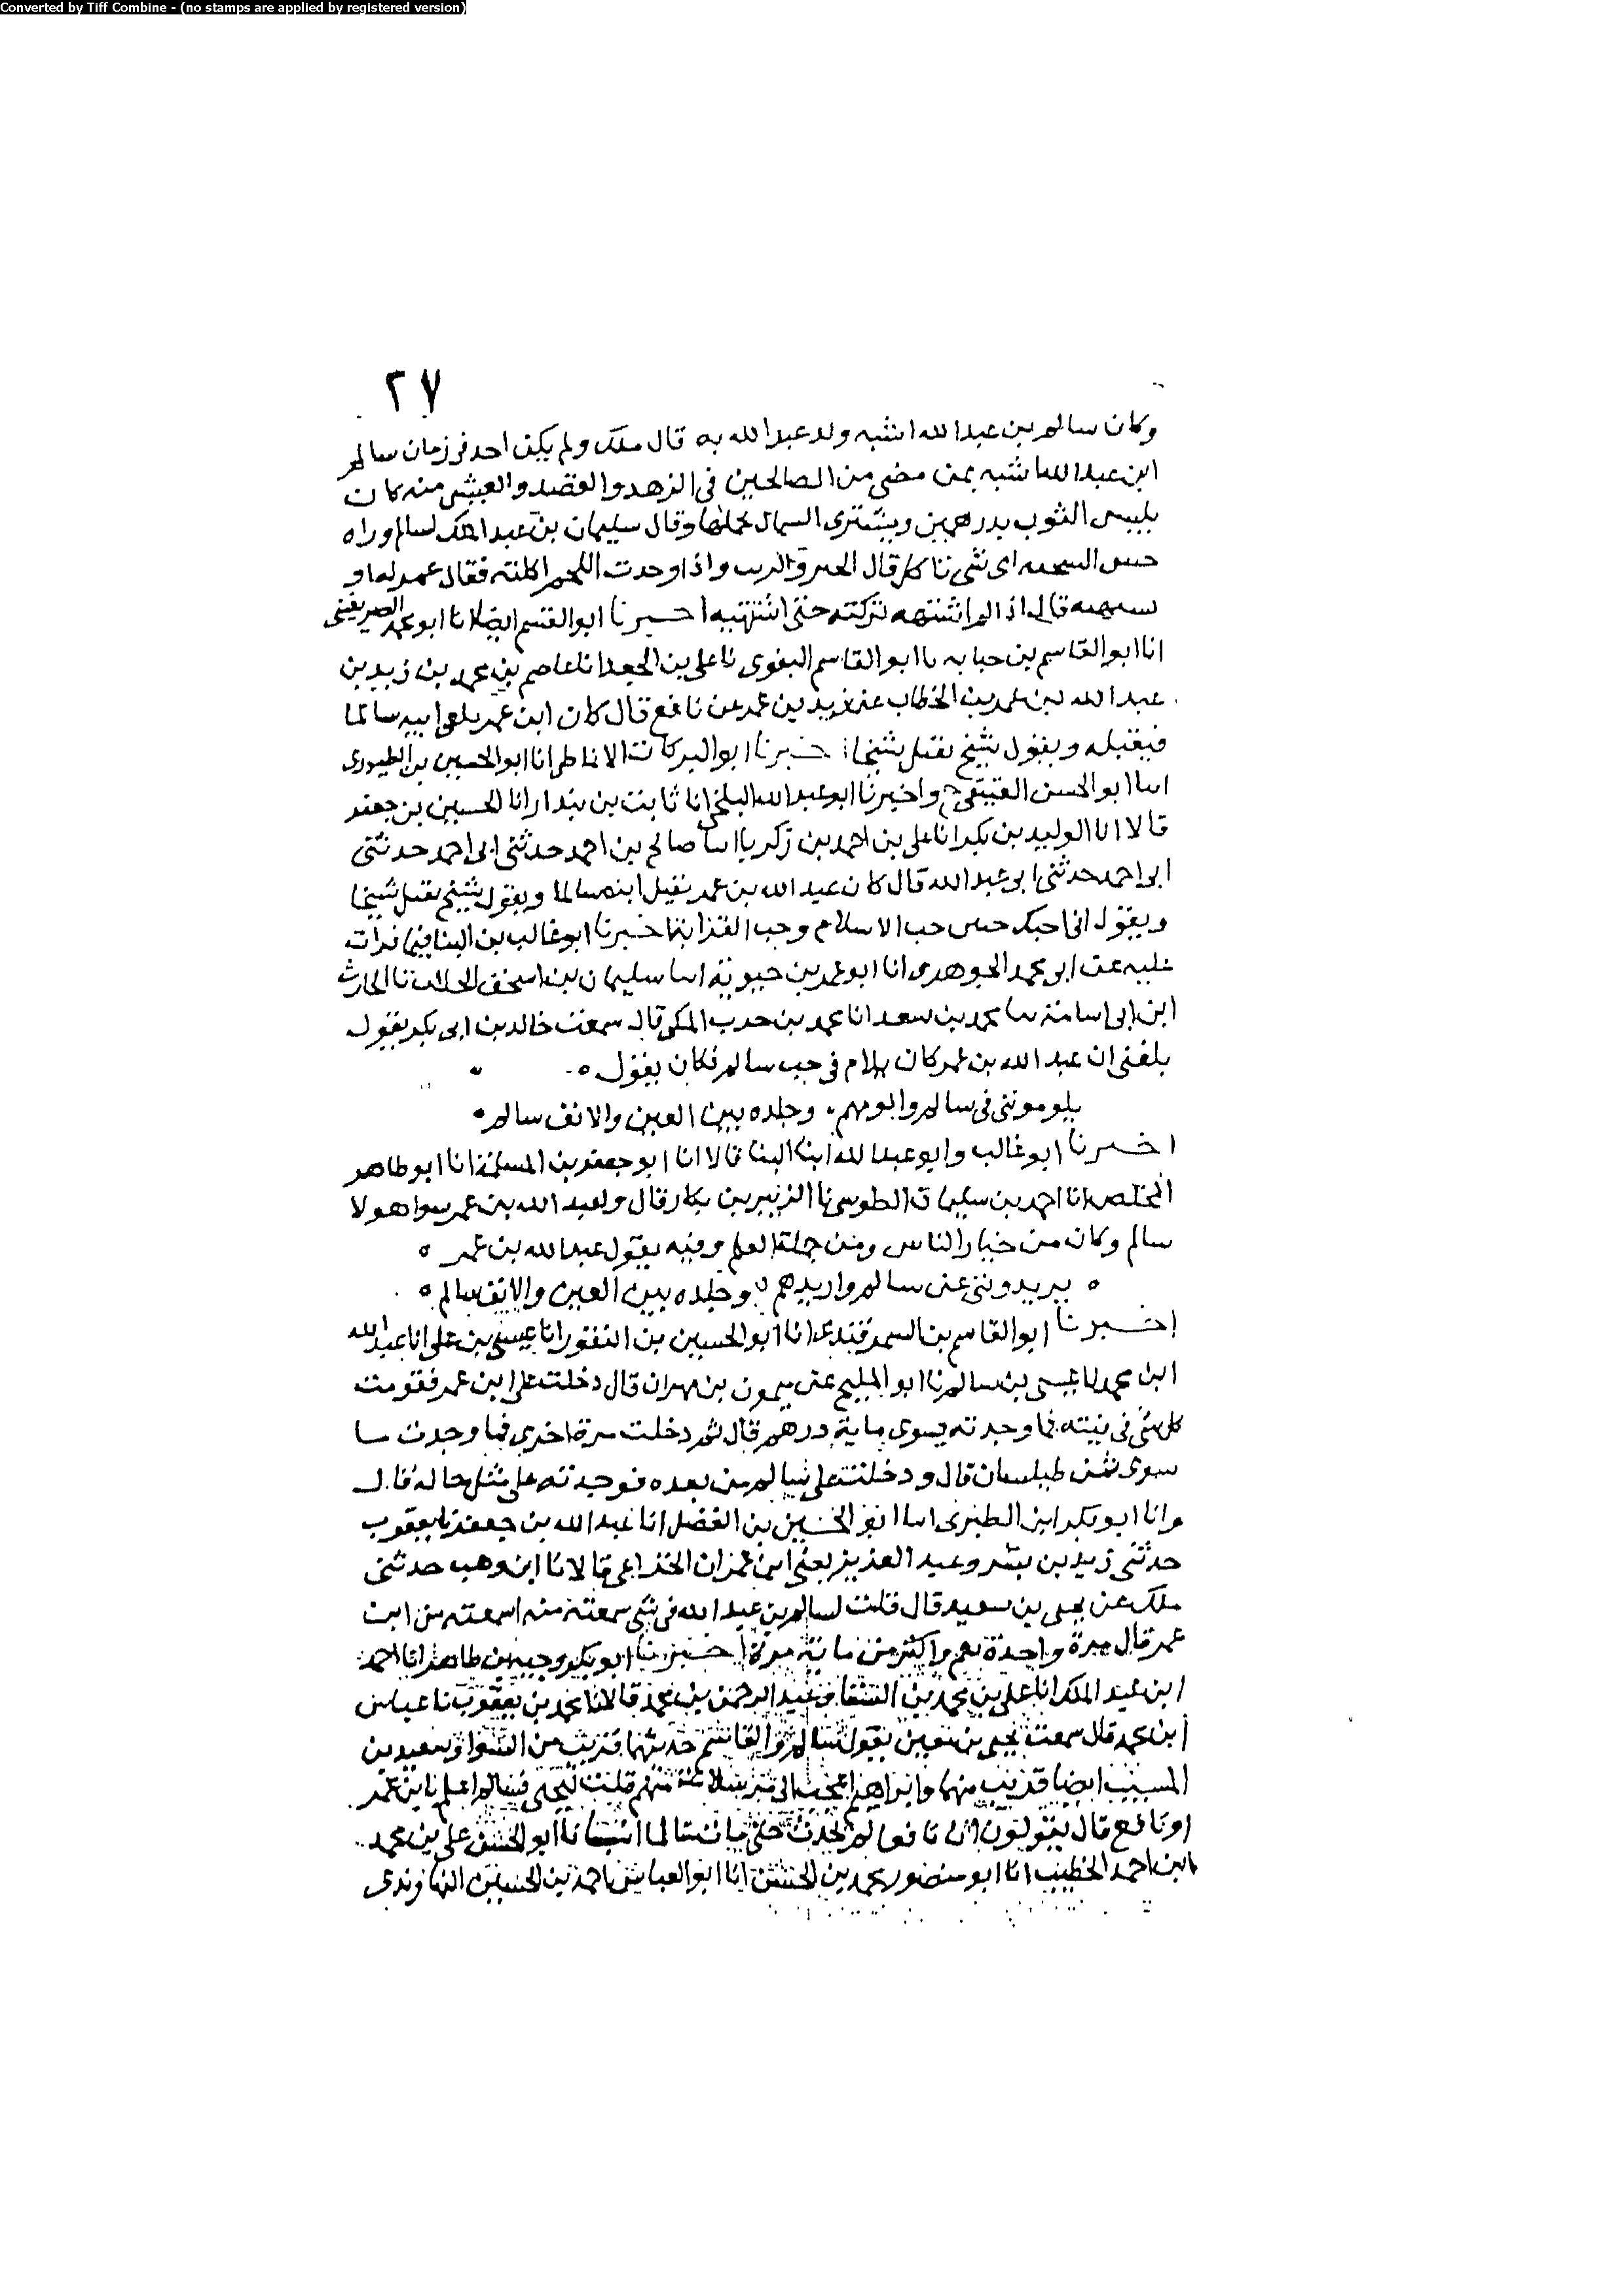 Converted by Tiff Combine - (no stamps are applied by registered version)
٢٧
وكان سالم بن عبد الله اشبه ولد عبد الله به قال ملك ولم يكن احد فى زمان سالم
ابن عبد الله اشبه بمن مضى من الصالحين فى الزهد والقصد والعيش منه كان
يلبس الثوب بدرهمين ويشترى السمال يحملها وقال سليمان بن عبد الملك لسالم وراه
حسن السحنه اى شى تاكل قال الخبز والزيت واذا وجدت اللحم اكلته فقال عمر له او
تشتهيه قال اذا لم اشتهه تركته حتى اشتهيه اخبرنا ابو القسم ايضا انا ابو محمد الصريفينى
انا ابو القاسم بن حبابه نا ابو القاسم البغوى نا على بن الجعد انا عاصم بن محمد بن زيد بن
عبد الله بن عمر بن الخطاب عن زيد بن عمر عن نافع قال كان ابن عمر يلقى ابنه سالما
فيقبله ويقول شيخ يقبل شيخا اخبرنا ابو البركات الانماطى انا ابو الحسين بن الطيورى
انا ابو الحسن العتيقى ح واخبرنا ابو عبد الله البلخى انا ثابت بن بندار انا الحسين بن جعفر
قالا انا الوليد بن بكر انا على بن احمد بن زكريا انا صالح بن احمد حدثنى ابى احمد حدثنى
ابى احمد حدثنى ابى عبد الله قال كان عبد الله بن عمر يقبل ابنه سالما ويقول شيخ يقبل شيخا
ويقول انى احبك حبين حب الاسلام وحب القرابة اخبرنا ابو غالب بن البنا فيما قرات
عليه عن ابى محمد الجوهرى انا ابو عمر بن حيويه انا سليمان بن اسحق الجلاب نا الحارث
ابن ابى اسامة نا محمد بن سعد انا محمد بن حرب المكى قال سمعت خالد بن ابى بكر يقول
بلغنى ان عبد الله بن عمر كان يلام فى حب سالم فكان يقول ه
يلومونى فى سالم والومهم . وجلده بين العين والانف سالم
اخبرنا ابو غالب وابو عبد الله ابنا البنا قالا انا ابو جعفر بن المسلمة انا ابو طاهر
المخلص انا احمد بن سليمان الطوسى نا الزبير بن بكار قال ولعبد الله بن عمر سوا هولا
سالم وكان من خيار الناس ومن جملة العلم وفيه يقول عبد الله بن عمر ه
ه يريدوننى عن سالم واريدهم . وجلده بين العين والانف سالم ه
اخبرنا ابو القاسم بن السمرقندى انا ابو الحسين بن النقور انا عيسى بن على انا عبد الله
ابن محمد نا عيسى بن سالم نا ابو المليح عن ميمون بن مهران قال دخلت على ابن عمر فقومت
كل شى فى بيته فما وجدته يسوى ماية درهم قال ثم دخلت مرة اخرى فما وجدت ما
سوى ثمن طيلسان قال ودخلت على سالم من بعده فوجدته على مثل حاله قال
وانا ابو بكر ابن الطبرى انا ابو الحسين بن الفضل انا عبد الله بن جعفر نا يعقوب
حدثنى زيد بن بشر وعبد العزيز يعنى ابن عمران الخزاعى قالا نا ابن وهب حدثنى
ملك عن يحيى بن سعيد قال قلت لسالم بن عبد الله فى شى سمعته منه اسمعته من ابن
عمر قال مرة واحدة نعم واكثر من ماية مرة اخبرنا ابو بكر وجيه بن طاهر انا احمد
ابن عبد الملك انا على بن محمد بن السقا وعبد الرحمن بن محمد قالا نا محمد بن يعقوب نا عباس
ابن محمد قال سمعت يحيى بن معين يقول سالم والقاسم حديثهما قريب من السوا وسعيد بن
المسيب ايضا قريب منهما وابراهيم اعجب الى مرسلا منهم قلت ليحيى فسالم اعلم بابن عمر
او نافع قال يقولون ان نافعا لم يحدث حتى مات سالم انبانا ابو الحسن على بن محمد
ابن احمد الخطيب انا ابو منصور محمد بن الحسن انا ابو العباس احمد بن الحسين النهاوندى